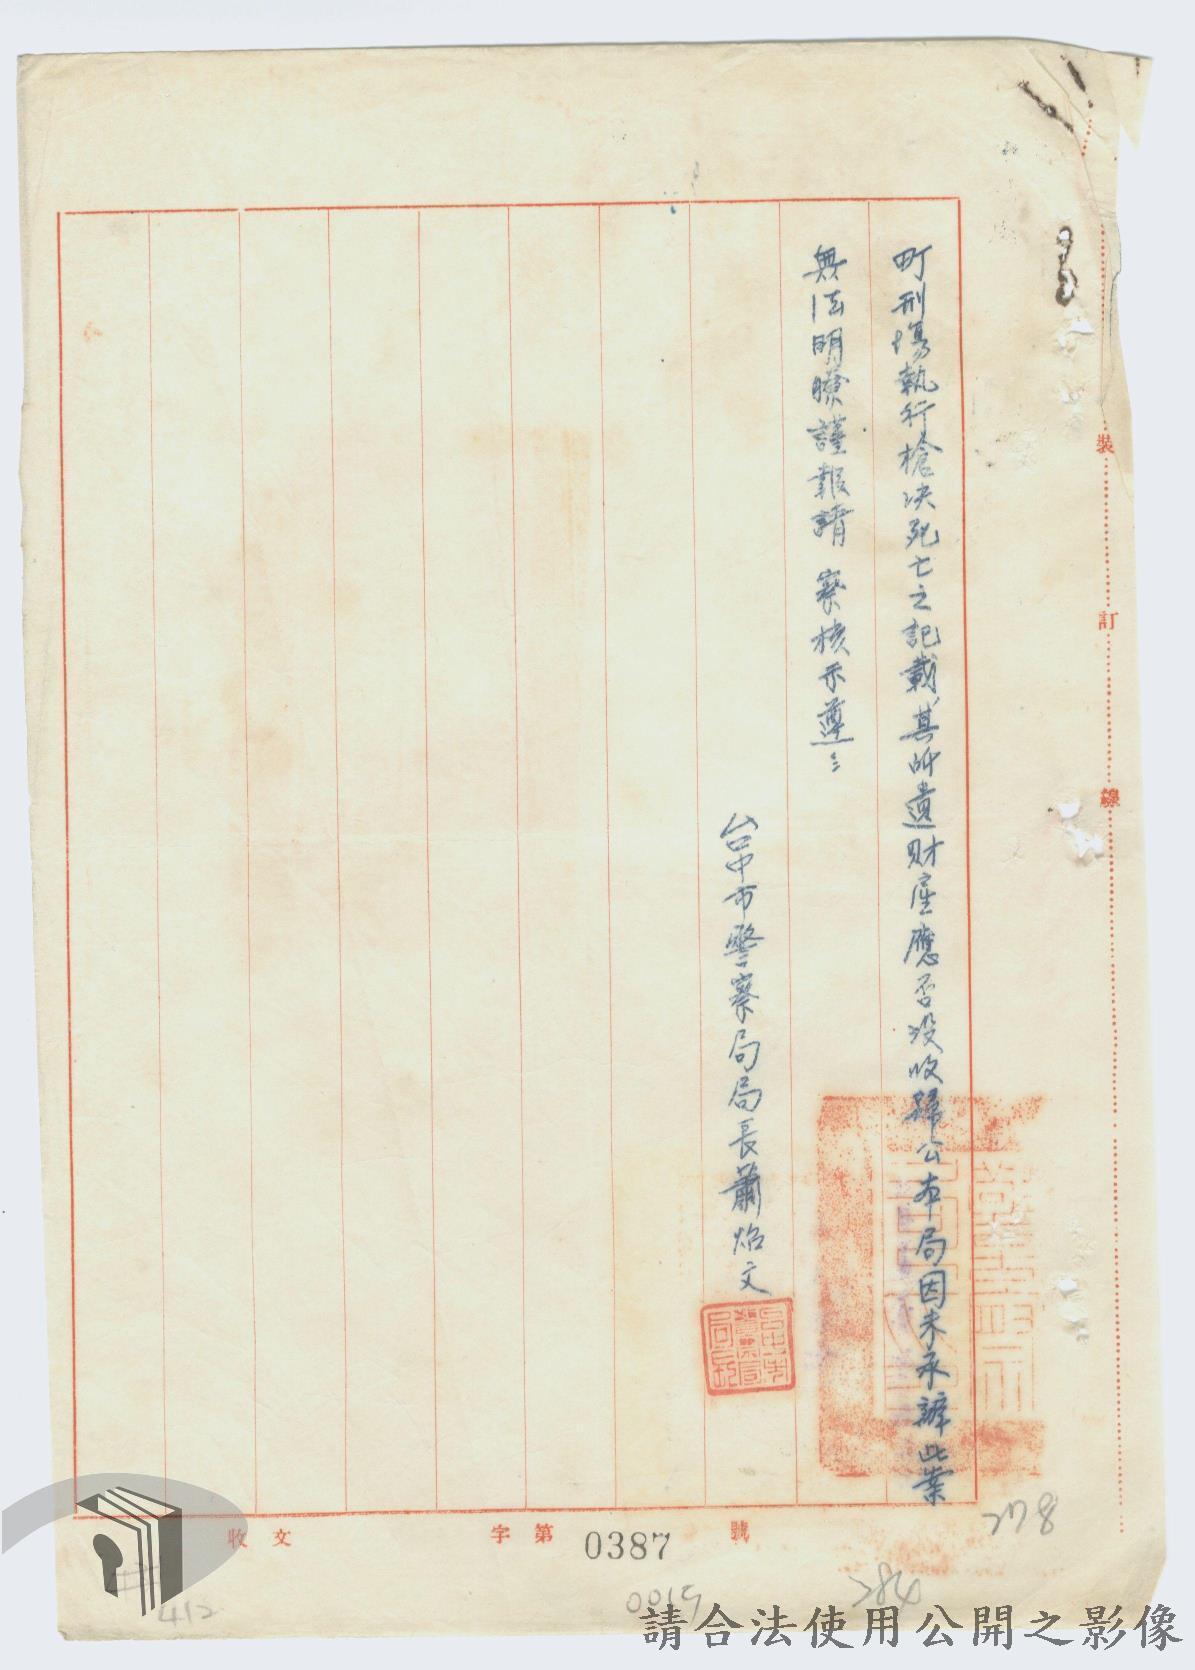 町刑場執行槍决死亡之記載其所遺財産應否没收歸公本局因未承辦此案
無法明瞭謹報請 察核示遵
台中市警察局局長蕭焰文
裝
訂
線
收文 字第0387號
278
284
0019
412
請合法使用公開之影像